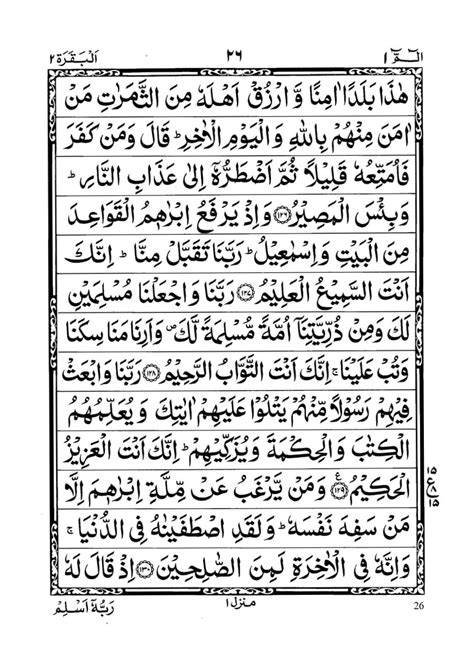 الٓمّٓ ۱ ۲۶ اَلْبَقَرَة ۲
هٰذَا بَلَدًا اٰمِنًا وَّ ارْزُقْ اَهْلَهٗ مِنَ الثَّمَرٰتِ مَنْ
اٰمَنَ مِنْهُمْ بِاللّٰهِ وَ الْیَوْمِ الْاٰخِرِ ؕ قَالَ وَمَنْ كَفَرَ
فَاُمَتِّعُهٗ قَلِیْلًا ثُمَّ اَضْطَرُّهٗۤ اِلٰی عَذَابِ النَّارِ ؕ
وَبِئْسَ الْمَصِیْرُ ﴿۱۲۶﴾ وَاِذْ یَرْفَعُ اِبْرٰهٖمُ الْقَوَاعِدَ
مِنَ الْبَیْتِ وَاِسْمٰعِیْلُ ؕ رَبَّنَا تَقَبَّلْ مِنَّا ؕ اِنَّكَ
اَنْتَ السَّمِیْعُ الْعَلِیْمُ ﴿۱۲۷﴾ رَبَّنَا وَاجْعَلْنَا مُسْلِمَیْنِ
لَكَ وَمِنْ ذُرِّیَّتِنَاۤ اُمَّةً مُّسْلِمَةً لَّكَ ۪ وَاَرِنَا مَنَاسِكَنَا
وَتُبْ عَلَیْنَا ۚ اِنَّكَ اَنْتَ التَّوَّابُ الرَّحِیْمُ ﴿۱۲۸﴾ رَبَّنَا وَابْعَثْ
فِیْهِمْ رَسُوْلًا مِّنْهُمْ یَتْلُوْا عَلَیْهِمْ اٰیٰتِكَ وَ یُعَلِّمُهُمُ
الْكِتٰبَ وَالْحِكْمَةَ وَیُزَكِّیْهِمْ ؕ اِنَّكَ اَنْتَ الْعَزِیْزُ
الْحَكِیْمُ ﴿۱۲۹﴾ ع وَمَنْ یَّرْغَبُ عَنْ مِّلَّةِ اِبْرٰهٖمَ اِلَّا
۱۵ ع ۸ ۱۵
مَنْ سَفِهَ نَفْسَهٗ ؕ وَلَقَدِ اصْطَفَیْنٰهُ فِی الدُّنْیَا ۚ
وَاِنَّهٗ فِی الْاٰخِرَةِ لَمِنَ الصّٰلِحِیْنَ ﴿۱۳۰﴾ اِذْ قَالَ لَهٗ
منزل ۱
رَبُّهٗۤ اَسْلِمْ
26